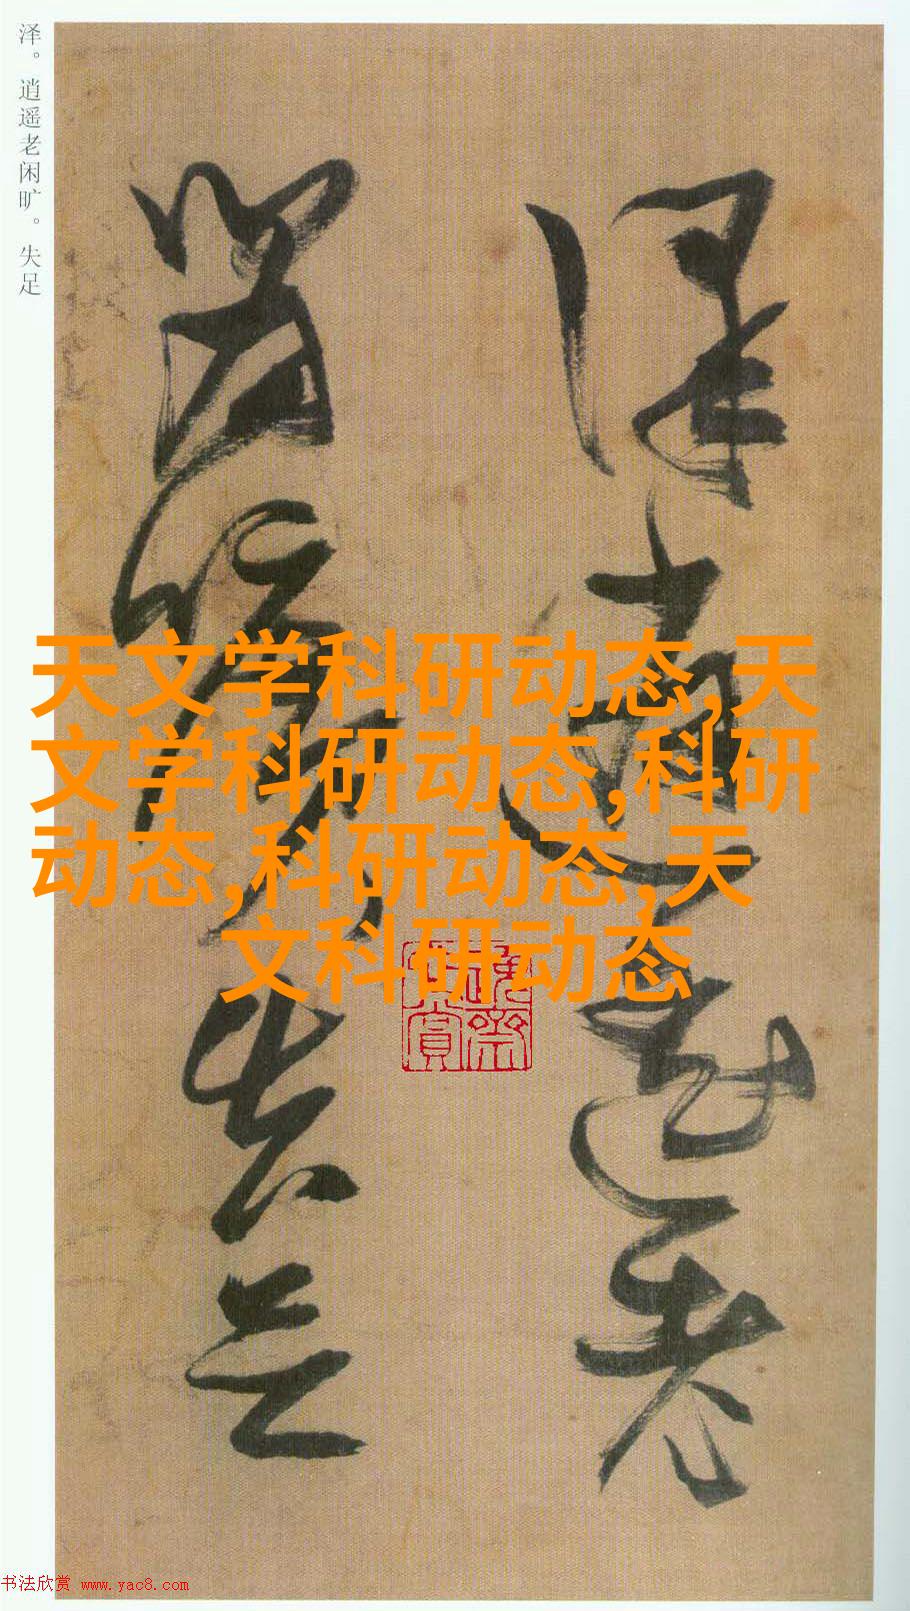 泽。逍遥老闲旷。失足
泽逍遥老
闲旷失足
天文学科研动态,天
文学科研动态,科研
动态,科研动态,天
文科研动态
书法欣赏 www.yac8.com